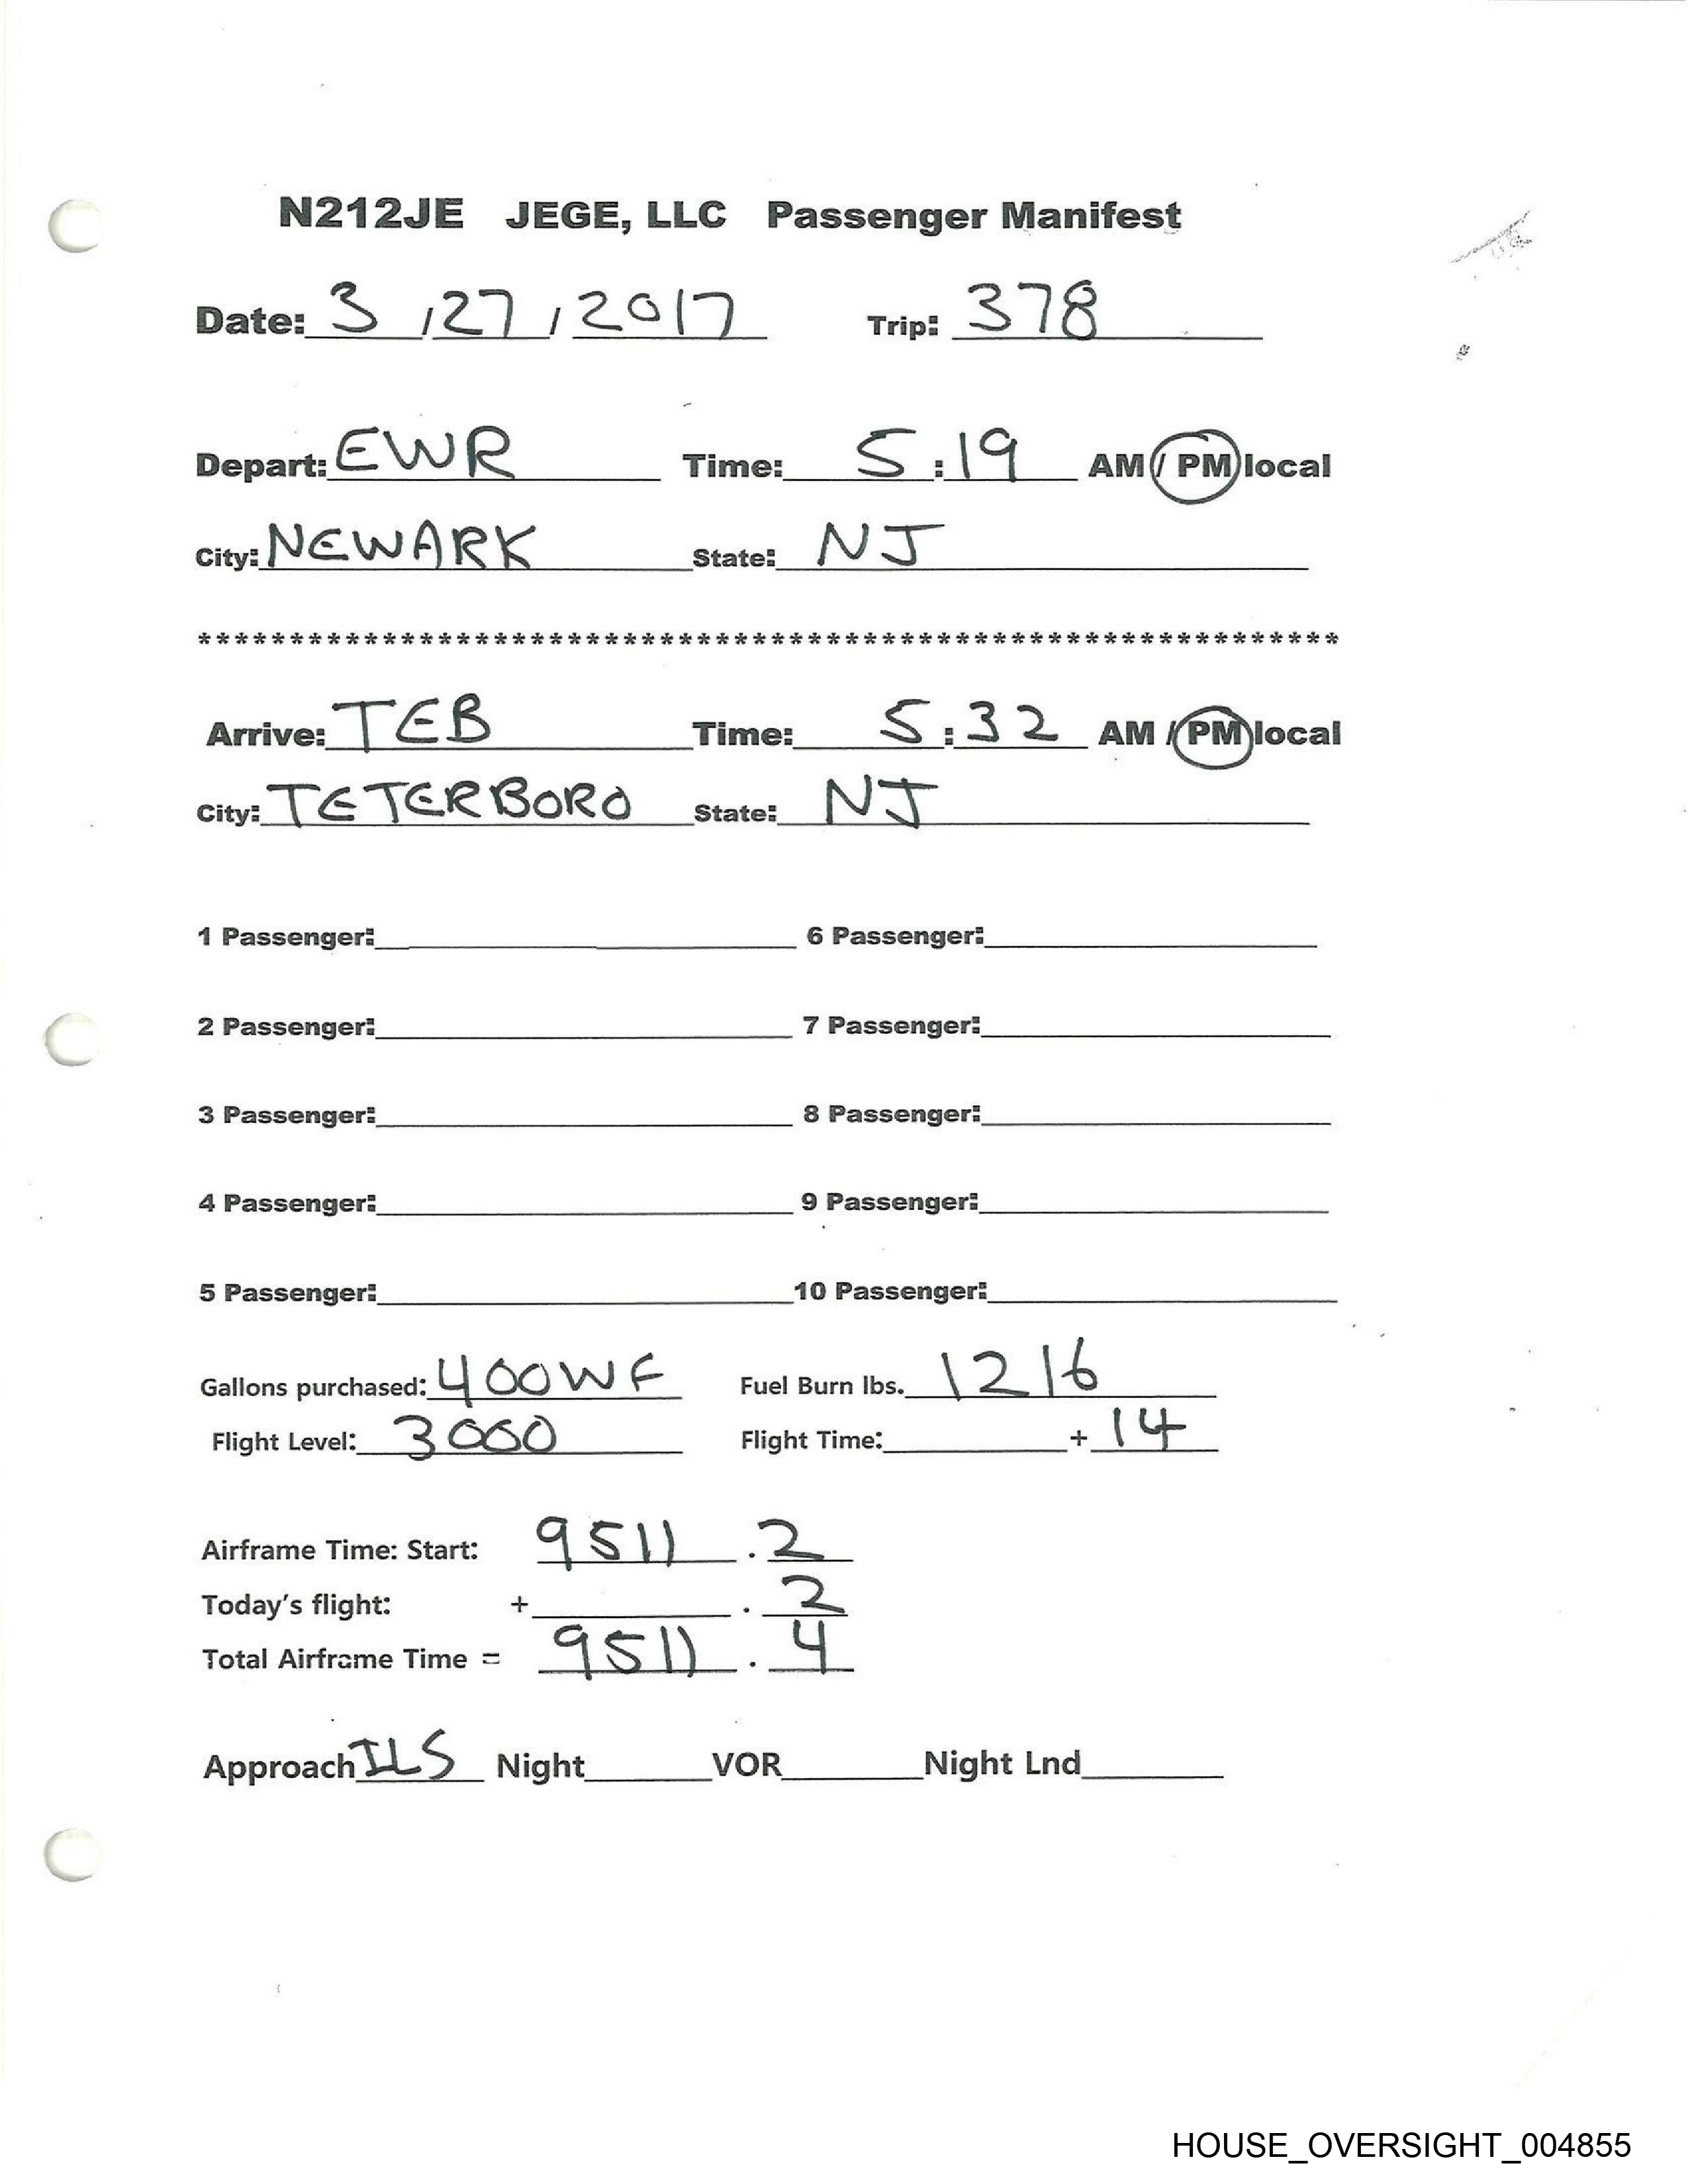 N212JE JEGE, LLC Passenger Manifest
Date: 3 / 27 / 2017 Trip: 378
Depart: EWR Time: 5:19 AM / PM local
City: NEWARK State: NJ
******************************************************************
Arrive: TEB Time: 5:32 AM / PM local
City: TETERBORO State: NJ
1 Passenger: 6 Passenger:
2 Passenger: 7 Passenger:
3 Passenger: 8 Passenger:
4 Passenger: 9 Passenger:
5 Passenger: 10 Passenger:
Gallons purchased: 400WF Fuel Burn lbs. 1216
Flight Level: 3000 Flight Time: + 14
Airframe Time: Start: 9511 . 2
Today's flight: + . 2
Total Airframe Time = 9511 . 4
Approach ILS Night VOR Night Lnd
HOUSE_OVERSIGHT_004855